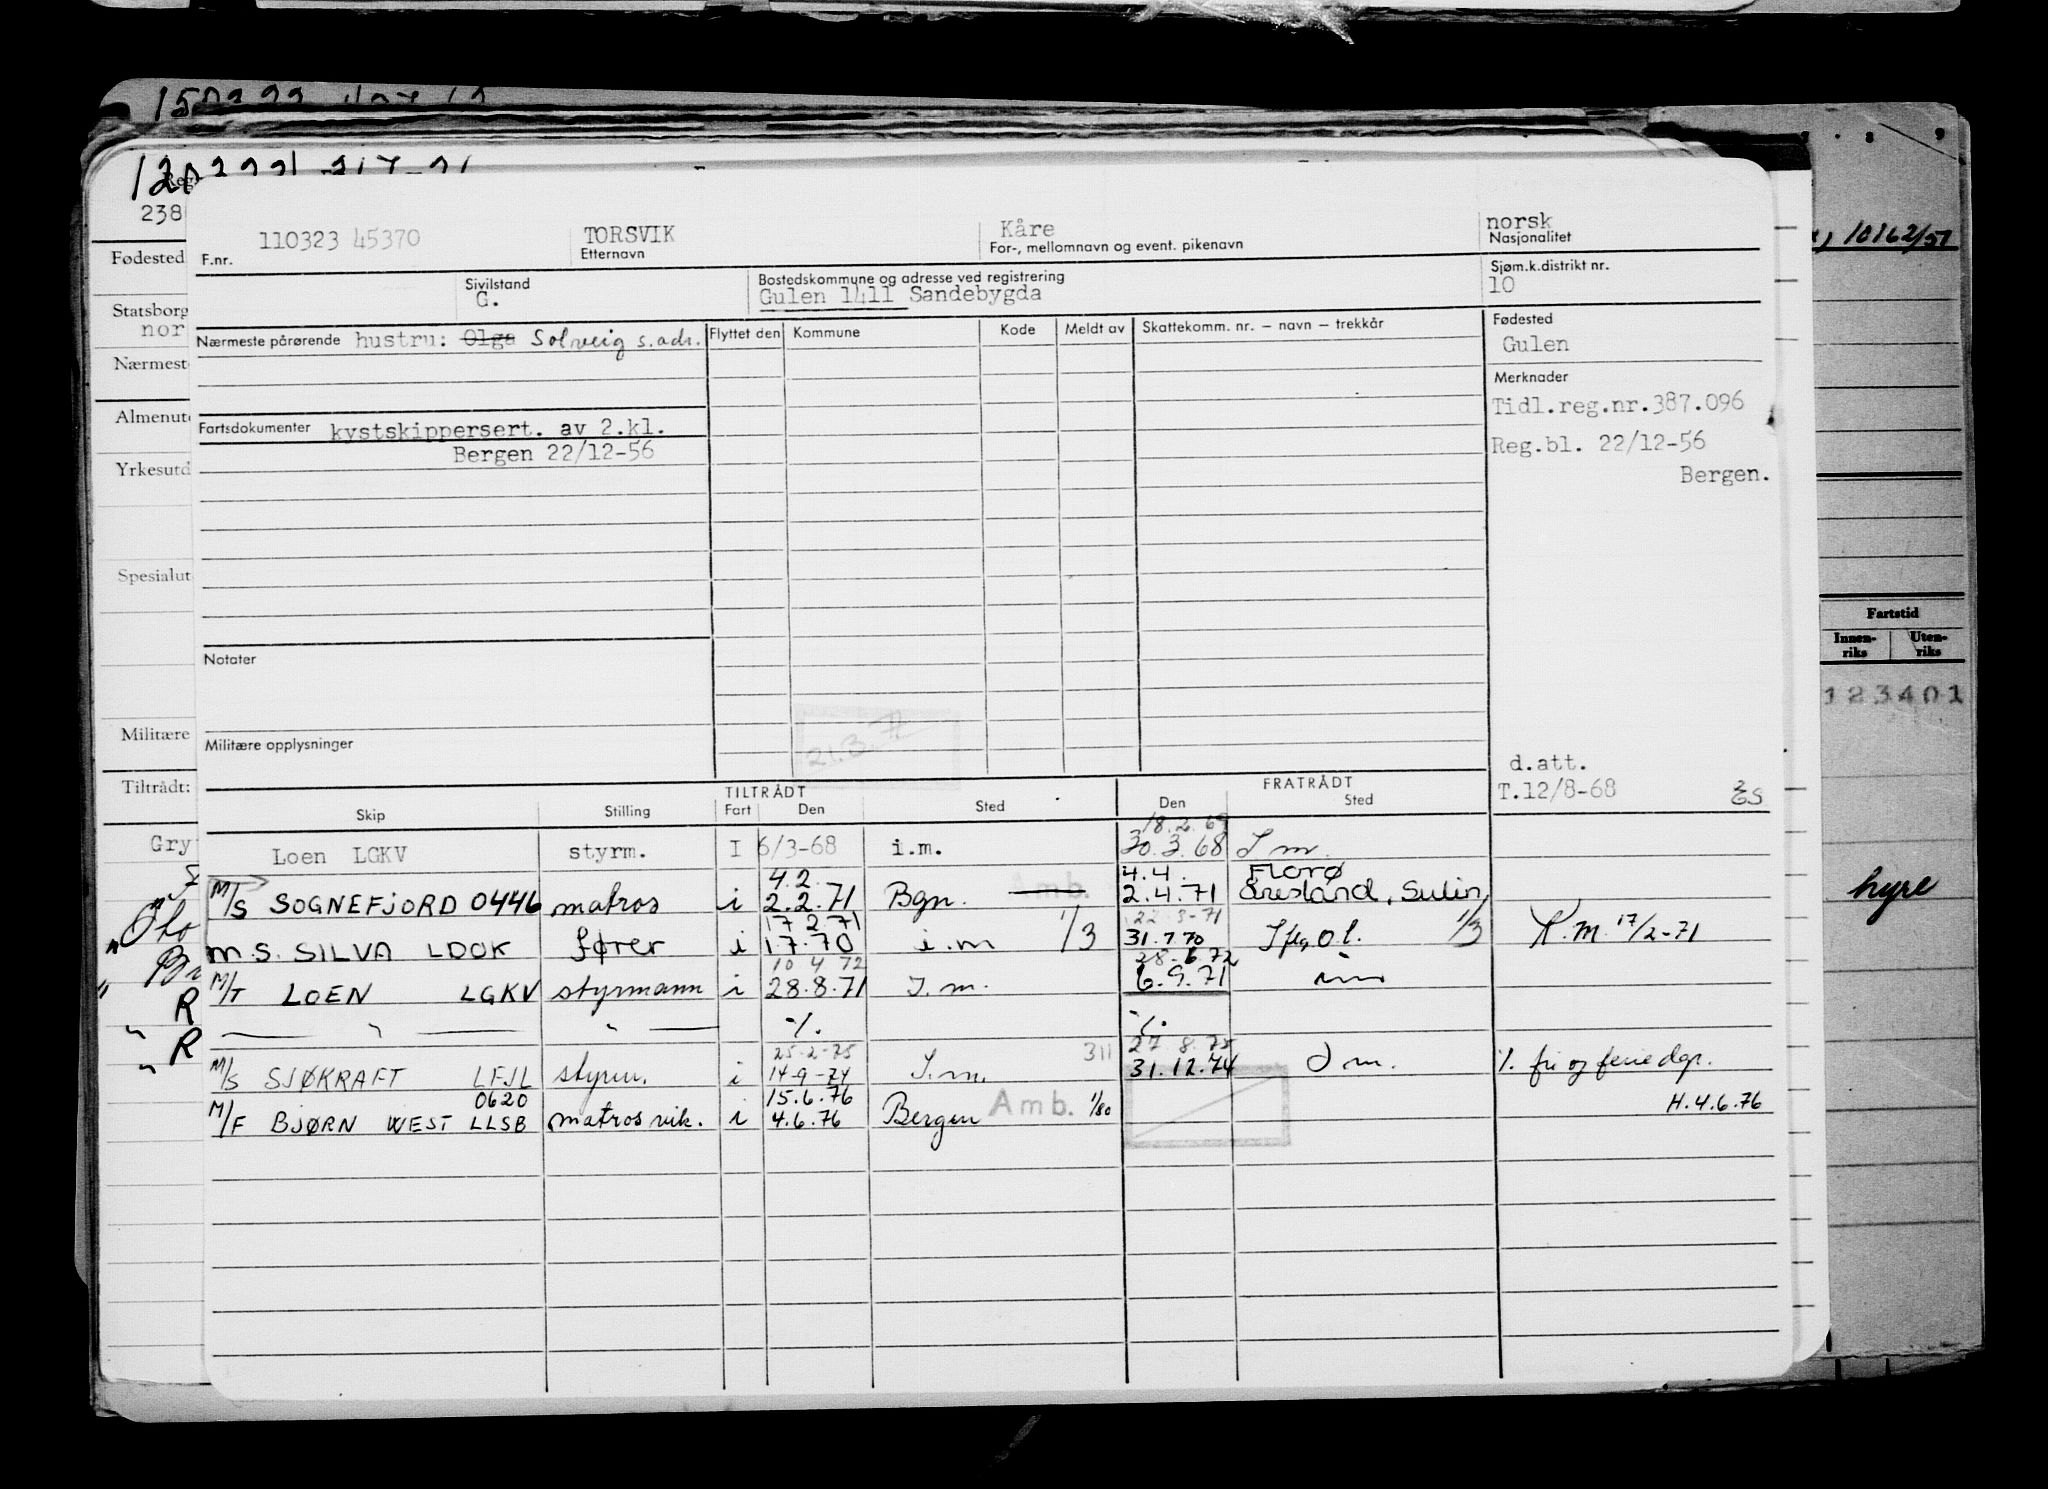 7 . 8 9
Reg
238
10162/51
110323 45370 TORSVIK Kåre norsk
F.nr. Etternavn For-, mellomnavn og event. pikenavn Nasjonalitet
Fødested
Sivilstand Bostedskommune og adresse ved registrering Sjøm.k.distrikt nr.
G. Gulen 1411 Sandebygda 10
Statsborg
nor
Nærmeste pårørende hustru: Olga Solveig s.adr. Flyttet den Kommune Kode Meldt av Skattekomm. nr. – navn – trekkår Fødested
Gulen
Nærmest
Merknader
Tidl.reg.nr.387.096
Almenut
Fartsdokumenter kystskippersert. av 2.kl.
Bergen 22/12-56
Reg.bl. 22/12-56
Bergen.
Yrkesutd
Spesialut
Fartstid
Innen-riks Uten-riks
Notater
123401
21.3.77
Militære
Militære opplysninger
d.att.
T.12/8-68 ES
Tiltrådt:
TILTRÅDT FRATRÅDT
Skip Stilling Fart Den Sted Den Sted
Gry
18.2.69
Loen LGKV styrm. I 6/3-68 i.m. 30.3.68 I m.
4.2. 4.4. Florø
M/S SOGNEFJORD 0446 matros i 2.2.71 Bgn. Amb. 2.4.71 , Sulin
hyre
17 2 71 22-3-71
M.S. SILVA LDOK fører i 17.70 i.m 1/3 31.7.70 1/3 K.M. 17/2-71
10 4 72 28-6-72
M/T LOEN LGKV styrmann i 28.8.71 I.m. 6.9.71 im
— " — " — ·/. ·/.
25-2-75 311 27 8.75
M/S SJØKRAFT LFJL styrm. i 14-9-74 I.m. 31.12.74 I m. ·/. fri og feriedgr.
0620 15.6.76
M/F BJØRN WEST LLSB matros vik. i 4.6.76 Bergen Amb. 1/80 H.4.6.76